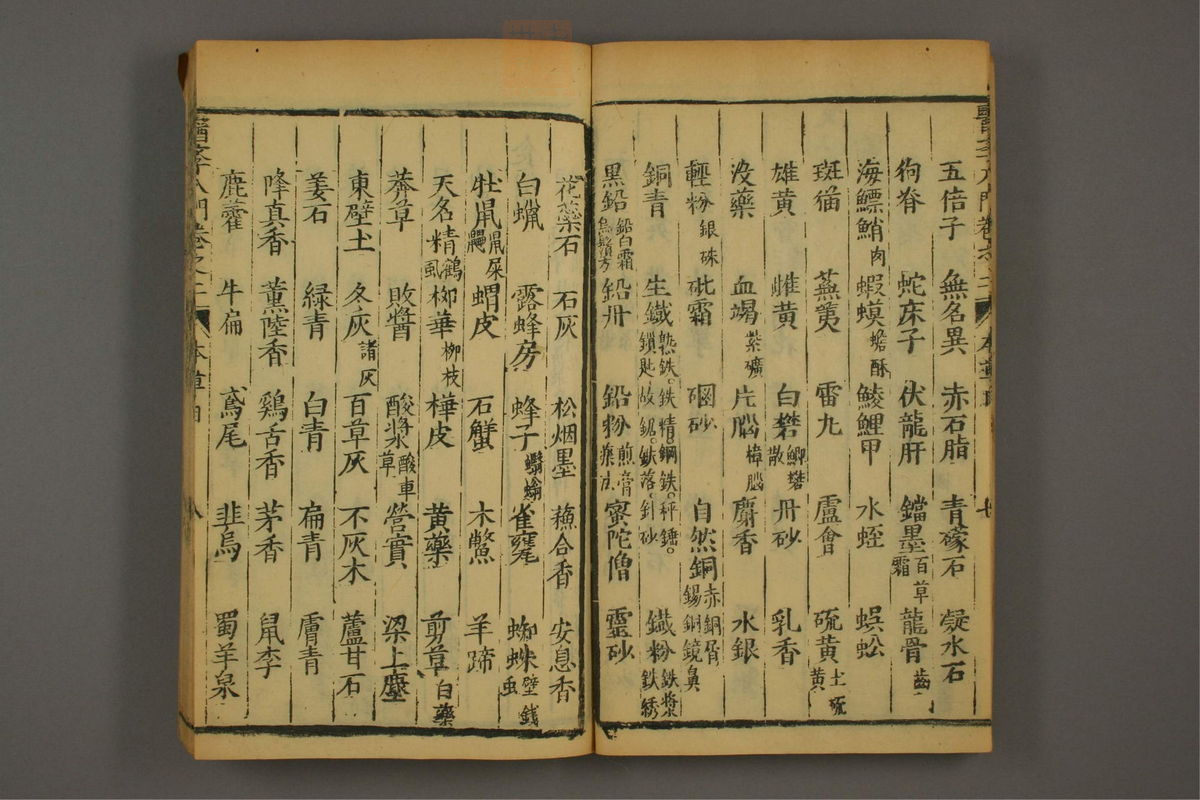 五倍子 無名異 赤石脂 青礞石 凝水石
狗脊 蛇床子 伏龍肝 鐺墨 百草霜 龍骨 齒
海鰾鮹 肉 蝦蟆 蟾酥 鯪鯉甲 水蛭 蜈蚣
斑猫 蕪荑 雷丸 盧會 硫黃 土硫黃
雄黃 雌黃 白礬 䃯礬散 丹砂 乳香
沒藥 血竭 紫礦 片腦 樟腦 麝香 水銀
輕粉 銀硃 砒霜 硇砂 自然銅 赤銅屑 錫銅鏡鼻
銅青 生鐵 熟鉄。鉄精。鋼鉄。秤錘。鎖匙。故鋸。鉄落。針砂 鐵粉 鉄漿 鉄綉
黑鉛 鉛白霜 烏鬚方 鉛丹 鉛粉 煎膏藥 蜜陀僧 靈砂
花蘂石 石灰 松烟墨 蘓合香 安息香
白蠟 露蜂房 蜂子 蠮螉 雀甕 蜘蛛 壁錢虫
牡鼠 鼠屎 鼺 蝟皮 石蟹 木鱉 羊蹄
天名精 鶴虱 栁華 柳枝 樺皮 黃藥 剪草 白藥
莽草 敗醬 酸漿草 酸車 營實 梁上塵
東壁土 冬灰 諸灰 百草灰 不灰木 蘆甘石
姜石 綠青 白青 扁青 膚青
降真香 薰陸香 鷄舌香 茅香 鼠李
鹿藿 牛扁 鳶尾 韭烏 蜀羊泉